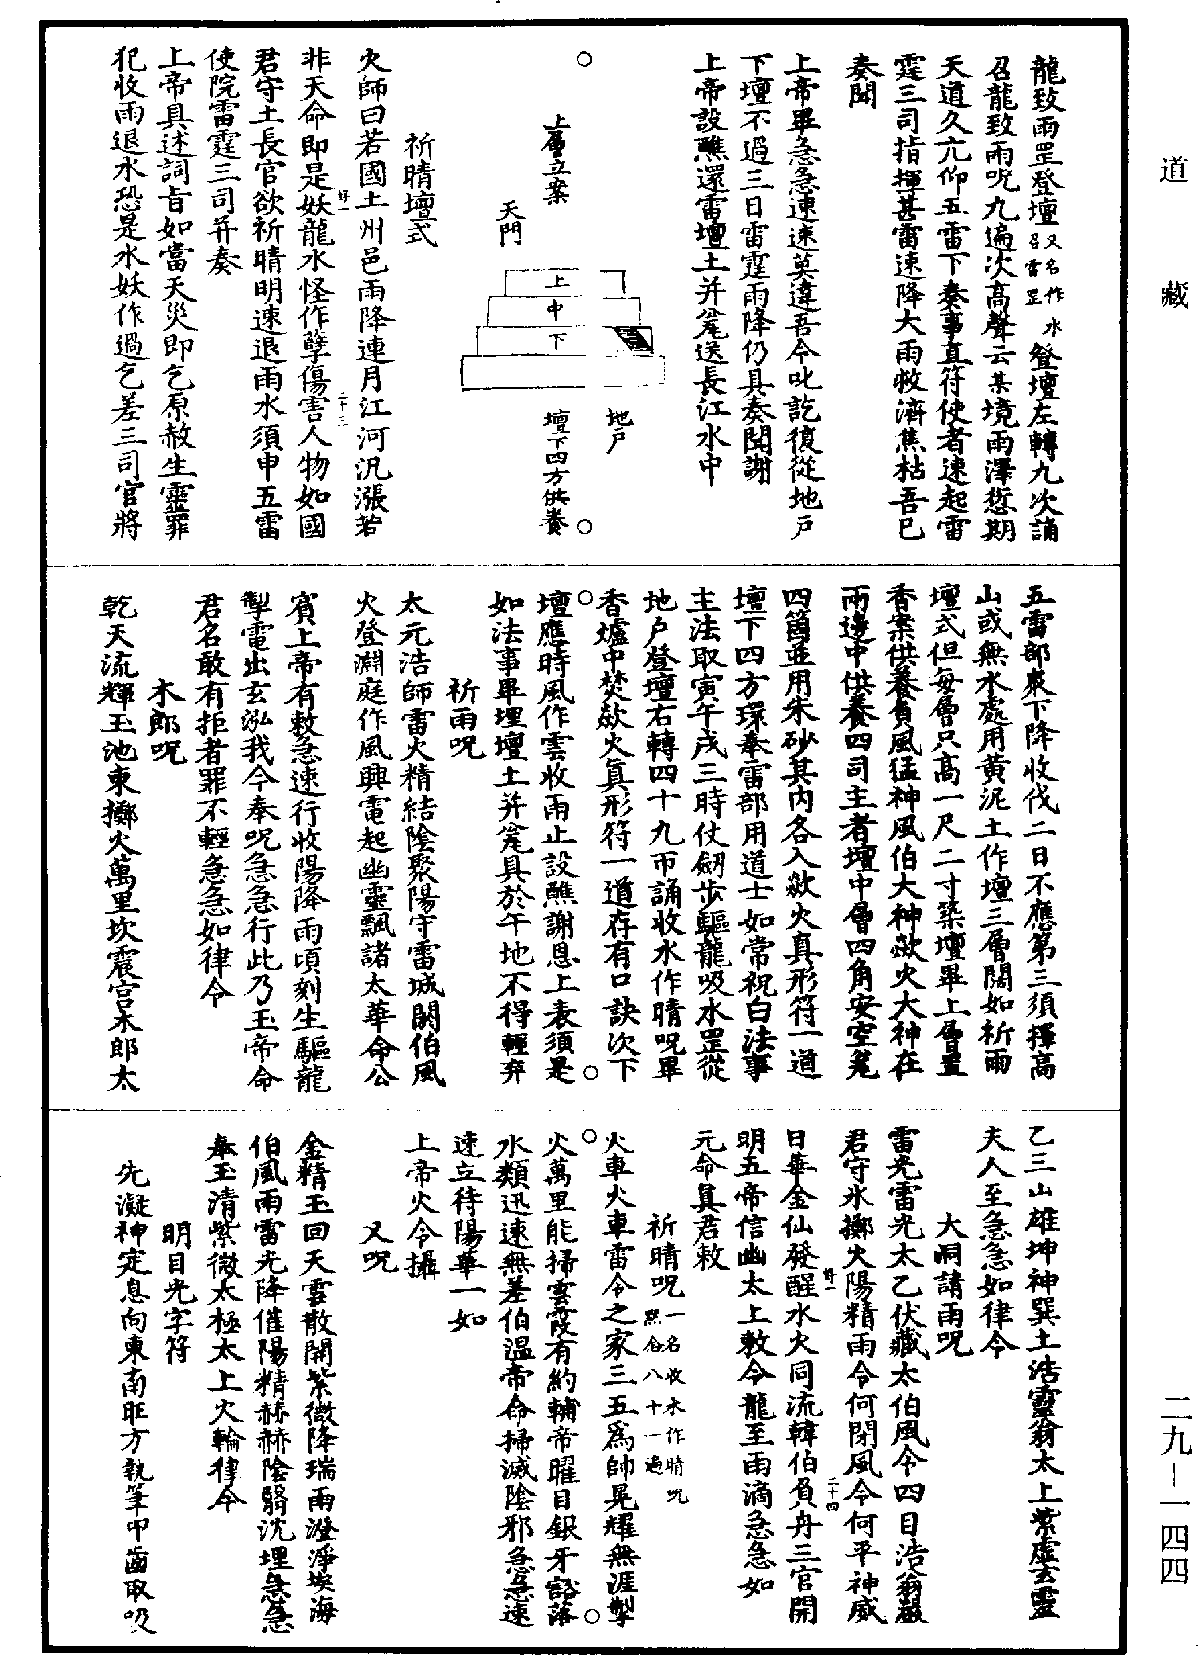 道藏
龍致雨罡登壇又名作水召雷罡登壇左轉九次誦
召龍致雨呪九遍次高聲云某境雨澤愆期
天道久亢仰五雷下奏事直符使者速起雷
霆三司指揮甚雷速降大雨救濟焦枯吾已
奏聞
上帝畢急急速速莫違吾令叱訖復從地戶
下壇不過三日雷霆雨降仍具奏聞謝
上帝設醮還雷壇土并瓮送長江水中
上層立案
天門
上
中
下
地戶
壇下四方供養
祈晴壇式
火師曰若國土州邑雨降連月江河汎漲若
非天命即是妖龍水怪作孽傷害人物如國
君守土長官欲祈晴明速退雨水須申五雷
使院雷霆三司并奏
上帝具述詞旨如當天災即乞原赦生靈罪
犯收雨退水恐是水妖作過乞差三司官將
二十三
五雷部衆下降收伐二日不應第三須擇高
山或無水處用黃泥土作壇三層闊如祈雨
壇式但每層只高一尺二寸築壇畢上層置
香案供養負風猛神風伯大神歘火大神在
兩邊中供養四司主者壇中層四角安空瓮
四箇並用朱砂其內各入歘火真形符一道
壇下四方環奉雷部用道士如常祝白法事
主法取寅午戌三時仗劒步驅龍吸水罡從
地戶登壇右轉四十九帀誦收水作晴呪畢
香爐中焚歘火眞形符一道存有口訣次下
壇應時風作雲收雨止設醮謝恩上表須是
如法事畢埋壇土并瓮具於午地不得輕弃
祈雨呪
太元浩師雷火精結陰聚陽守雷城關伯風
火登淵庭作風興電起幽靈飄諸太華命公
賓上帝有敕急速行收陽降雨頃刻生驅龍
掣電出玄泓我今奉呪急急行此乃玉帝命
君名敢有拒者罪不輕急急如律令
木郎呪
乾天流輝玉池東擲火萬里坎震宮木郎太
乙三山雄坤神巽土浩靈翁太上紫虛玄靈
夫人至急急如律令
大洞請雨呪
雷光雷光太乙伏藏太伯風令四目浩翁嚴
君守氷擲火陽精雨令何閉風令何平神威
日華金仙發醒水火同流韓伯負舟三官開
明五帝信幽太上敕令龍至雨滴急急如
元命眞君敕
二十四
祈晴呪一名收水作晴呪默念八十一遍
火車火車雷令之家三五爲帥晃耀無涯掣
火萬里能掃雲霞有約輔帝曜目銀牙豁落
水類迅速無差伯溫帝命掃滅陰邪急急速
速立待陽華一如
上帝火令攝
又呪
金精玉回天雲散開紫微降瑞雨澄淨埃海
伯風雨雷光降催陽精赫赫陰翳沈埋急急
奉玉清紫微太極太上火輪律令
明目光字符
先凝神定息向東南旺方執筆叩齒取吸
二九-一四四